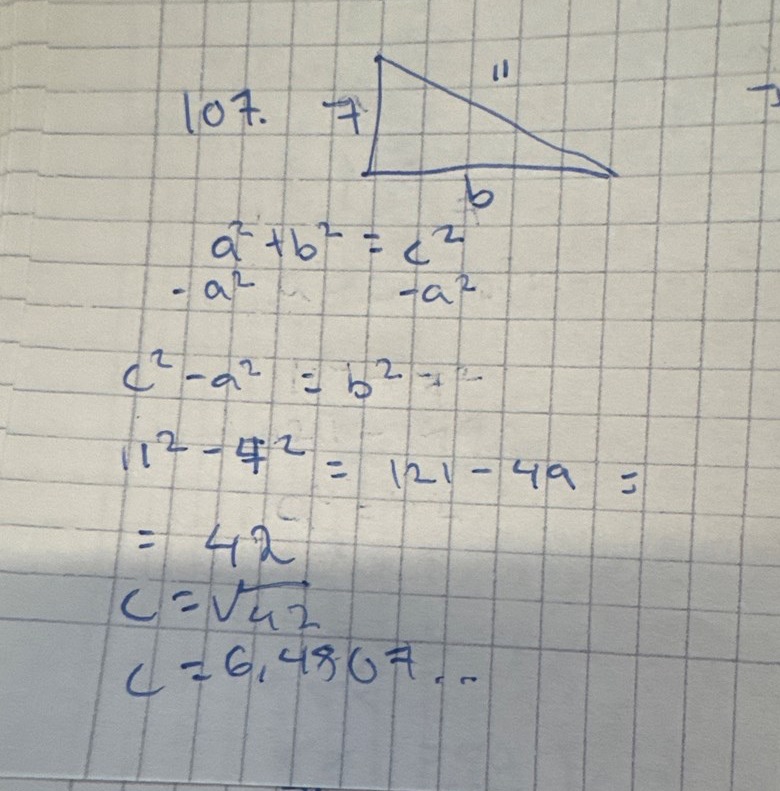 107. 7 11
b
a² + b² = c²
- a² -a²
c² - a² = b²
11² - 7² = 121 - 49 =
= 42
c = √42
c = 6,4807...